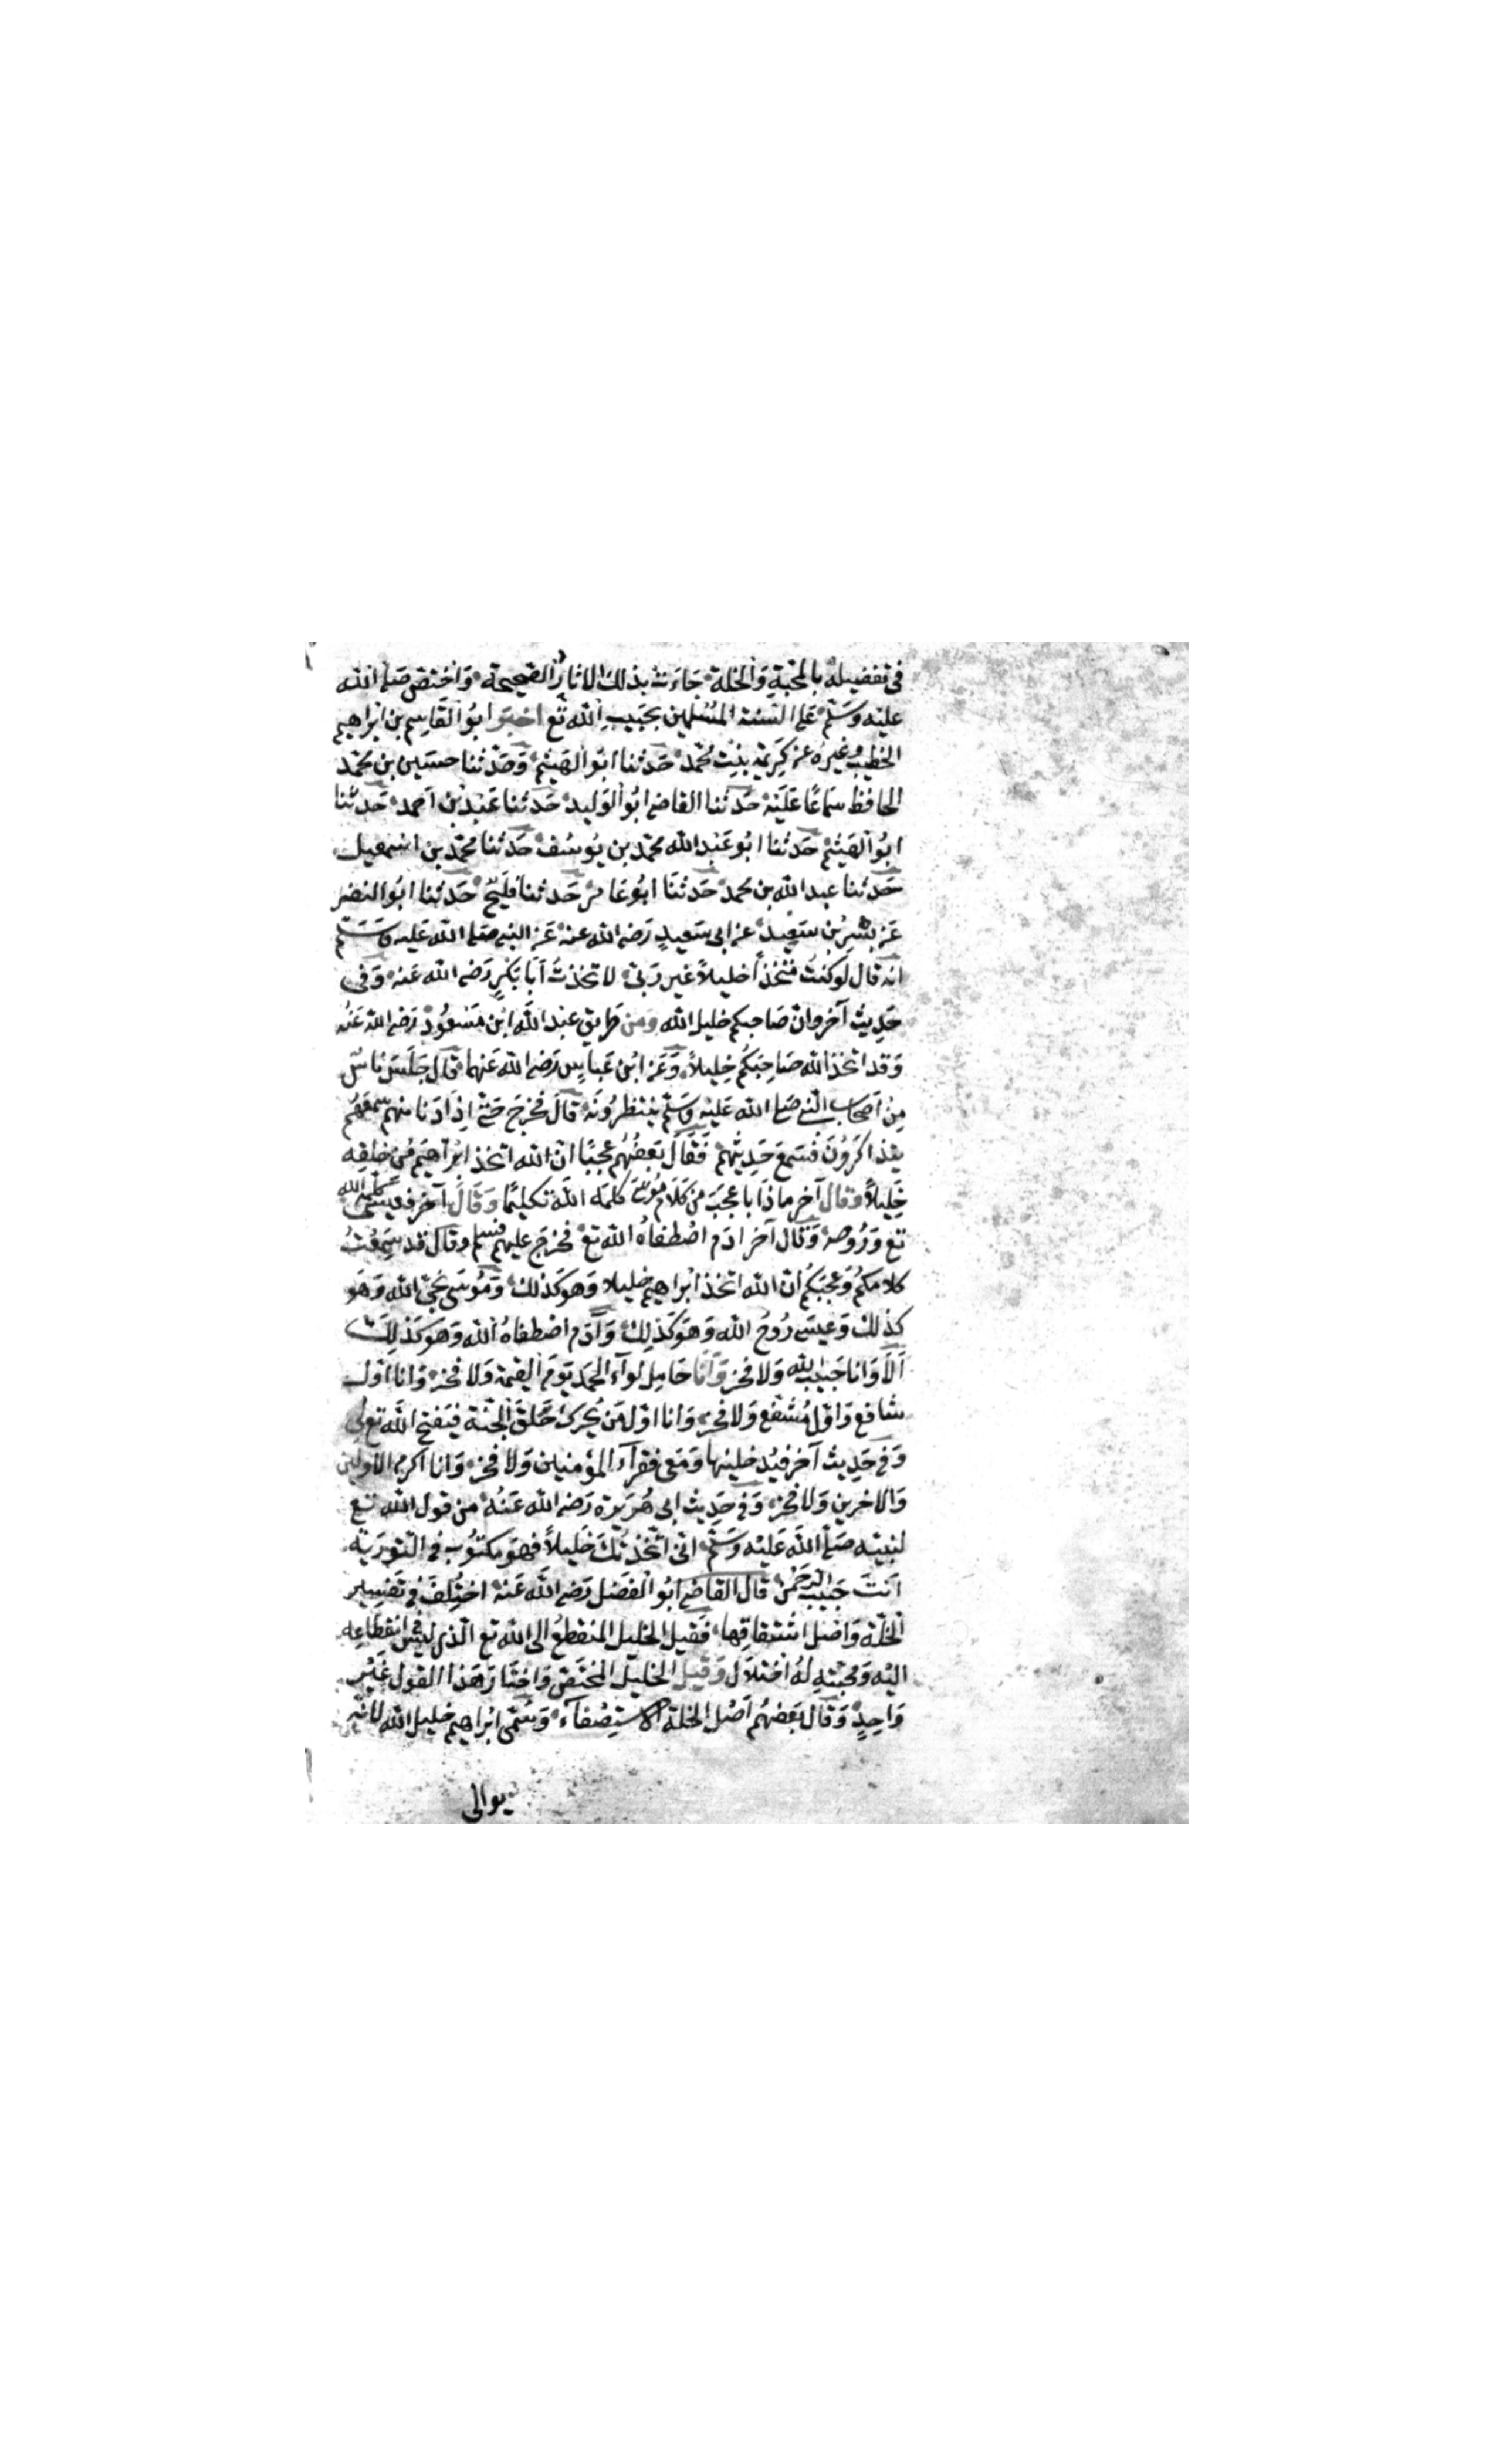 في تفضيله بالمحبة والخلة جاءت بذلك الاثار الصحيحة واختص صلى الله
عليه وسلم على السنة المسلمين بحبيب الله تع اخبرنا ابو القاسم بن ابراهيم
الخطيب وغيره عن كريمة بنت محمد حدثنا ابو الهيثم وحدثنا حسين بن محمد
الحافظ سماعا عليه حدثنا القاضي ابو الوليد حدثنا عبد بن احمد حدثنا
ابو الهيثم حدثنا ابو عبد الله محمد بن يوسف حدثنا محمد بن اسمعيل
حدثنا عبد الله بن محمد حدثنا ابو عامر حدثنا فليح حدثنا ابو النضر
عن بسر بن سعيد عن ابى سعيد رضى الله عنه عن النبى صلى الله عليه وسلم
انه قال لو كنت متخذا خليلا غير ربى لاتخذت أبا بكر رضى الله عنه وفى
حديث آخر وان صاحبكم خليل الله ومن طريق عبد الله ابن مسعود رضى الله عنه
وقد اتخذ الله صاحبكم خليلا وعن ابن عباس رضى الله عنهما قال جلس ناس
من أصحاب النبى صلى الله عليه وسلم ينتظرونه قال فخرج حتى اذا دنا منهم سمعهم
يتذاكرون فسمع حديثهم فقال بعضهم عجبا ان الله اتخذ ابراهيم من خلقه
خليلا وقال آخر ماذا باعجب من كلام موسى كلمه الله تكليما وقال آخر فعيسى كلمة الله
تع وروحه وقال آخر ادم اصطفاه الله تع فخرج عليهم فسلم وقال قد سمعت
كلامكم وعجبكم ان الله اتخذ ابراهيم خليلا وهو كذلك وموسى نجى الله وهو
كذلك وعيسى روح الله وهو كذلك وآدم اصطفاه الله وهو كذلك
ألا وانا حبيب الله ولا فخر وأنا حامل لوآء الحمد يوم القيمة ولا فخر وانا اول
شافع واول مشفع ولا فخر وانا اول من يحرك حلق الجنة فيفتح الله تعلى
وفى حديث آخر فيدخلنيها ومعى فقرآء المؤمنين ولا فخر وانا اكرم الاولين
والاخرين ولا فخر وفى حديث ابى هريرة رضى الله عنه من قول الله تع
لنبيه صلى الله عليه وسلم انى اتخذتك خليلا فهو مكتوب فى التورية
أنت حبيب الرحمن قال القاضى ابو الفضل رضى الله عنه اختلف فى تفسير
الخلة واصل اشتقاقها فقيل الخليل المنقطع الى الله تع الذى ليس فى انقطاعه
اليه ومحبته له اختلال وقيل الخليل المختص واختار هذا القول غير
واحد وقال بعضهم أصل الخلة الاستصفآء وسمى ابراهيم خليل الله لانه
يوالى